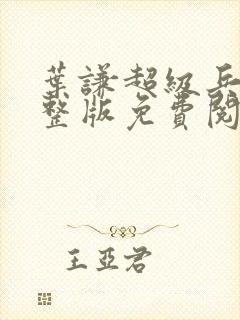 葉謙超級兵
整版免費閱
王亞君